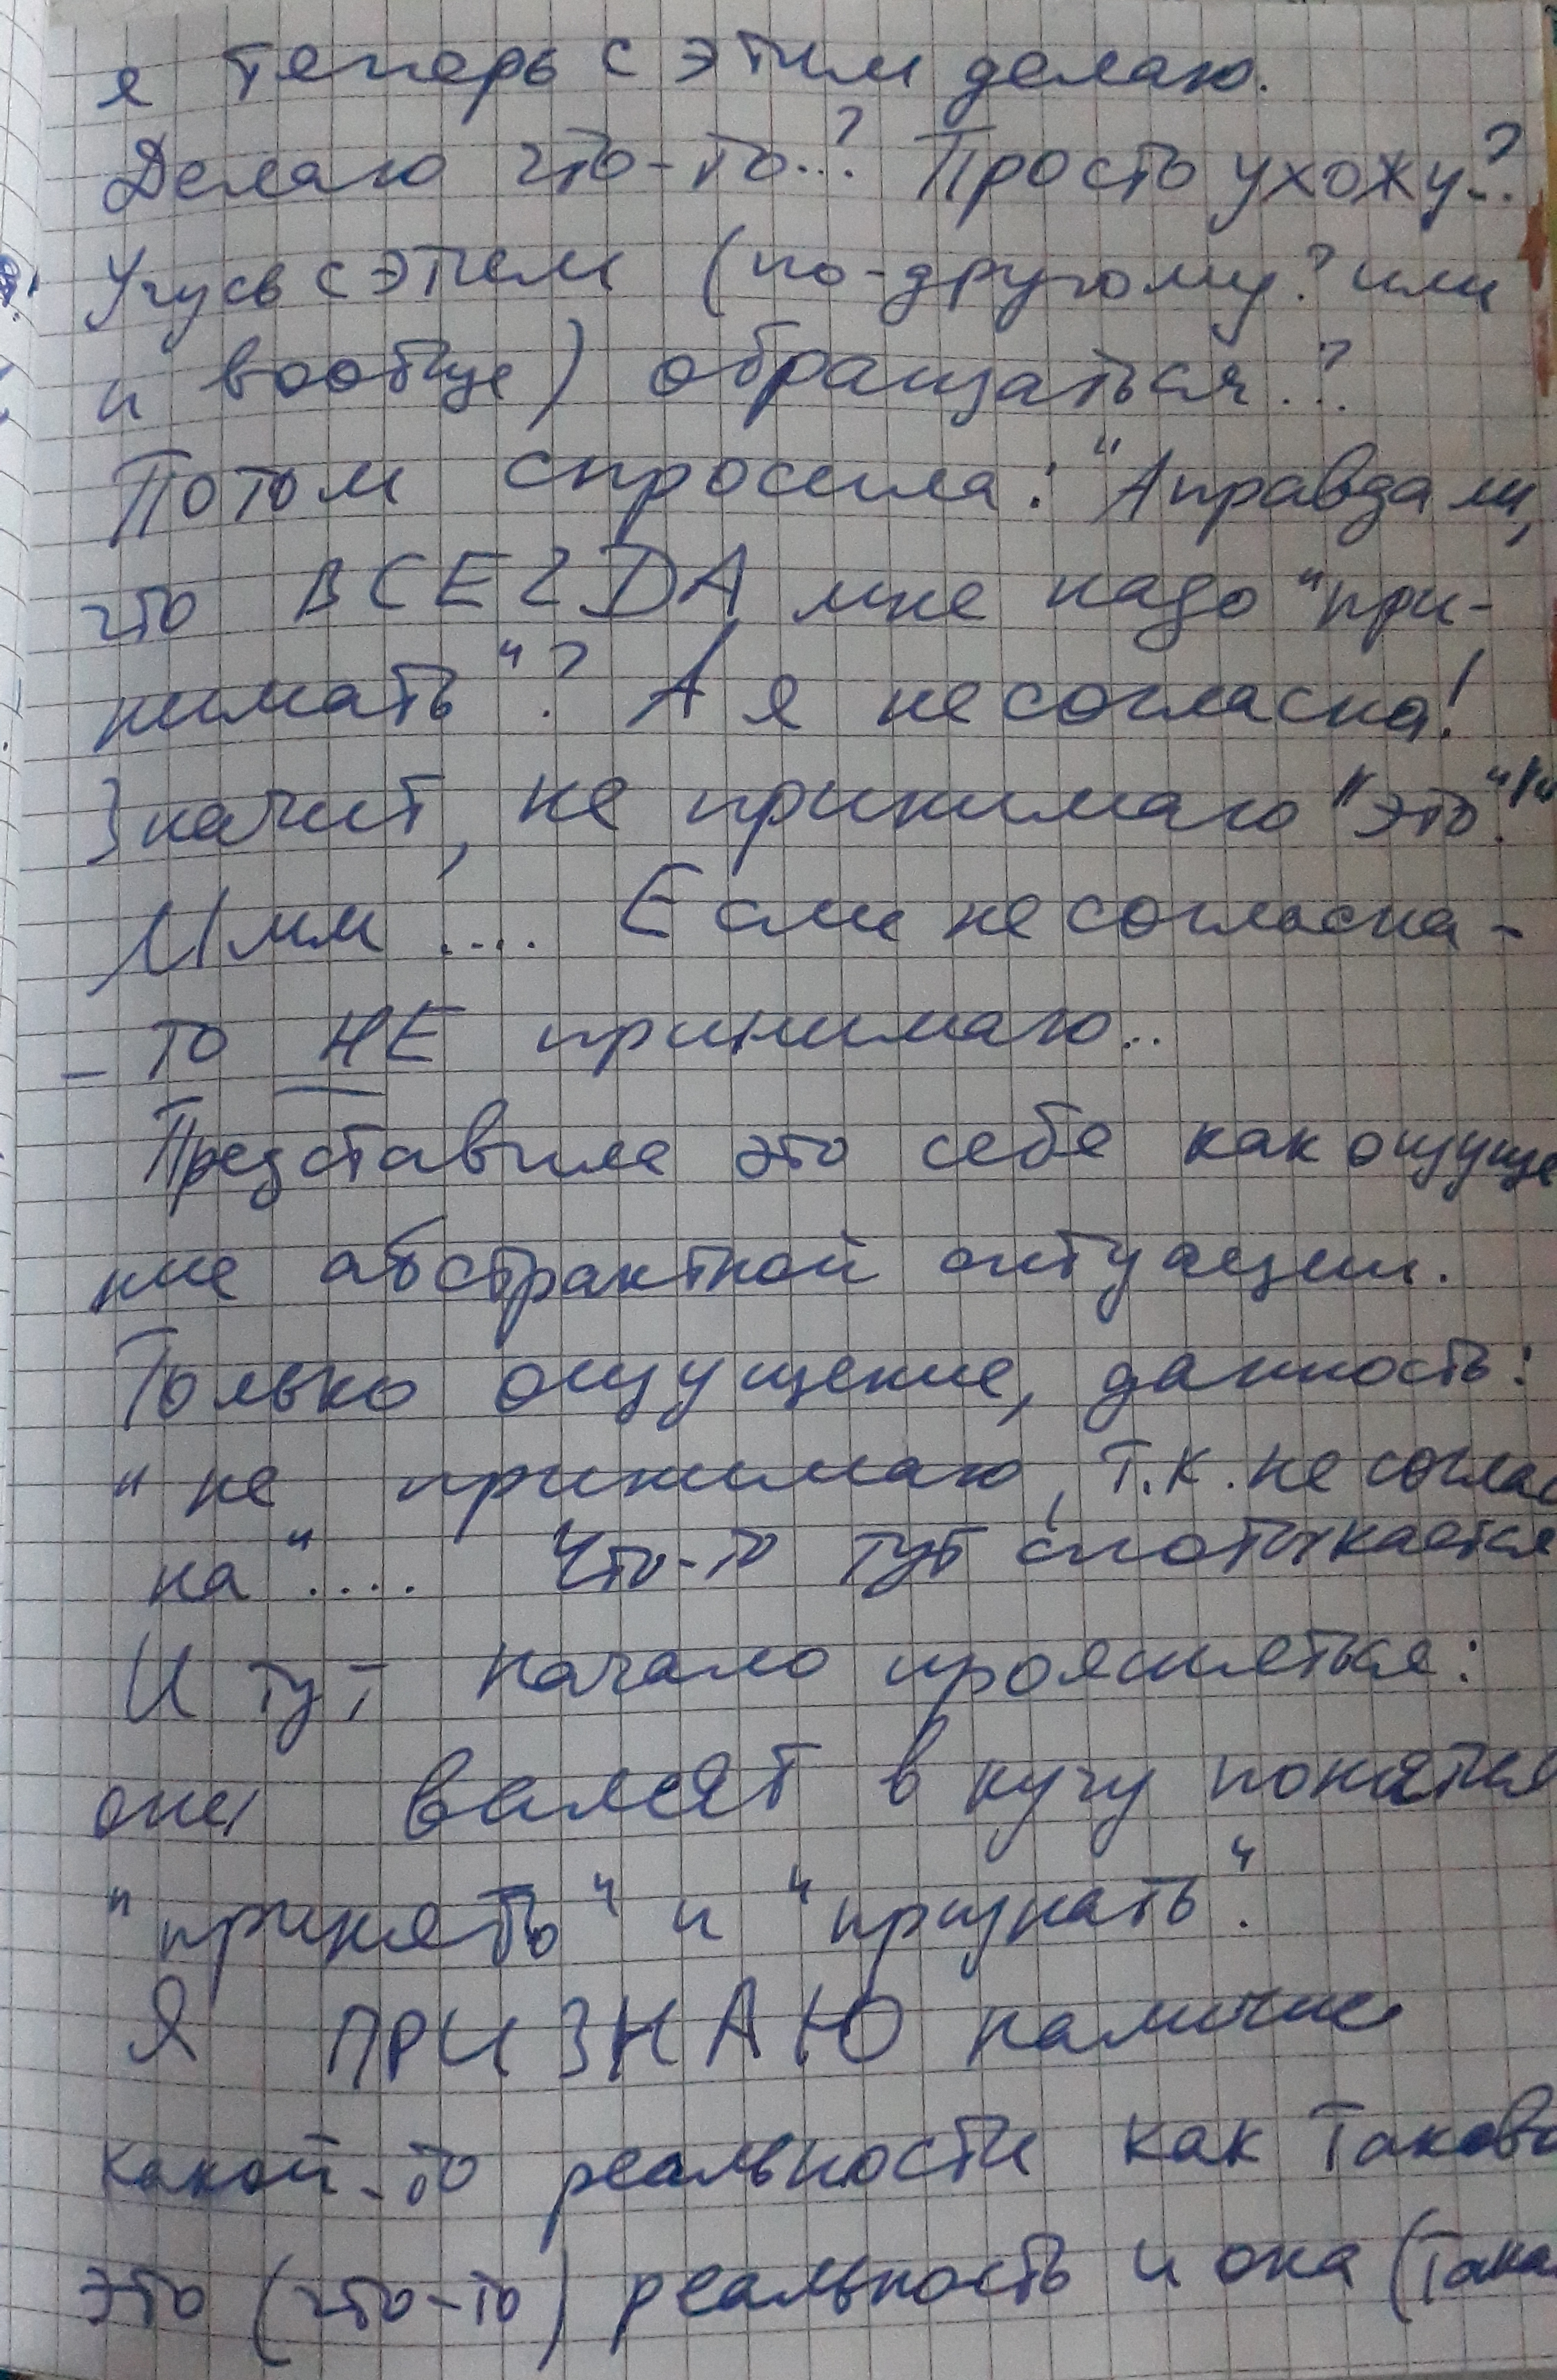 я теперь с этим делаю.
Делаю что-то..? Просто ухожу..?
Учусь с этим (по-другому? или
и вообще) обращаться..?
Потом спросила: "А правда ли,
что ВСЕГДА мне надо "при-
нимать"? А я не согласна!
Значит, не принимаю "это"!"
Ммм .... Если не согласна -
- то НЕ принимаю..
Представила это себе как ощуще
ние абстрактной ситуации.
Только ощущение, данность:
"не принимаю, т.к. не соглас
на".... Что-то тут спотыкается
И тут начало проясняться:
они валят в кучу понятия
"принять" и "признать".
Я ПРИЗНАЮ наличие
какой-то реальности как таково
это (что-то) реальность и она (така